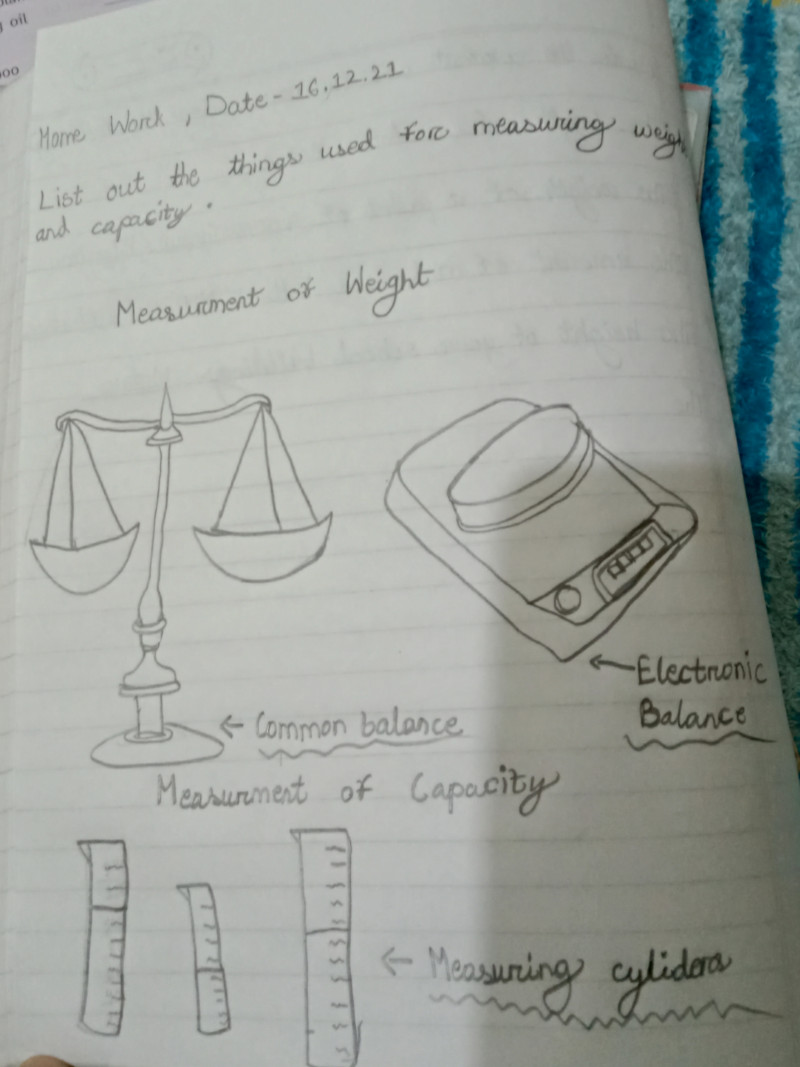 oil
Home Work, Date - 16.12.21
List out the things used for measuring
and capacity.
Measurment of Weight
← Electronic
Balance
← Common balance
Measurment of Capacity
← Measuring cylidera